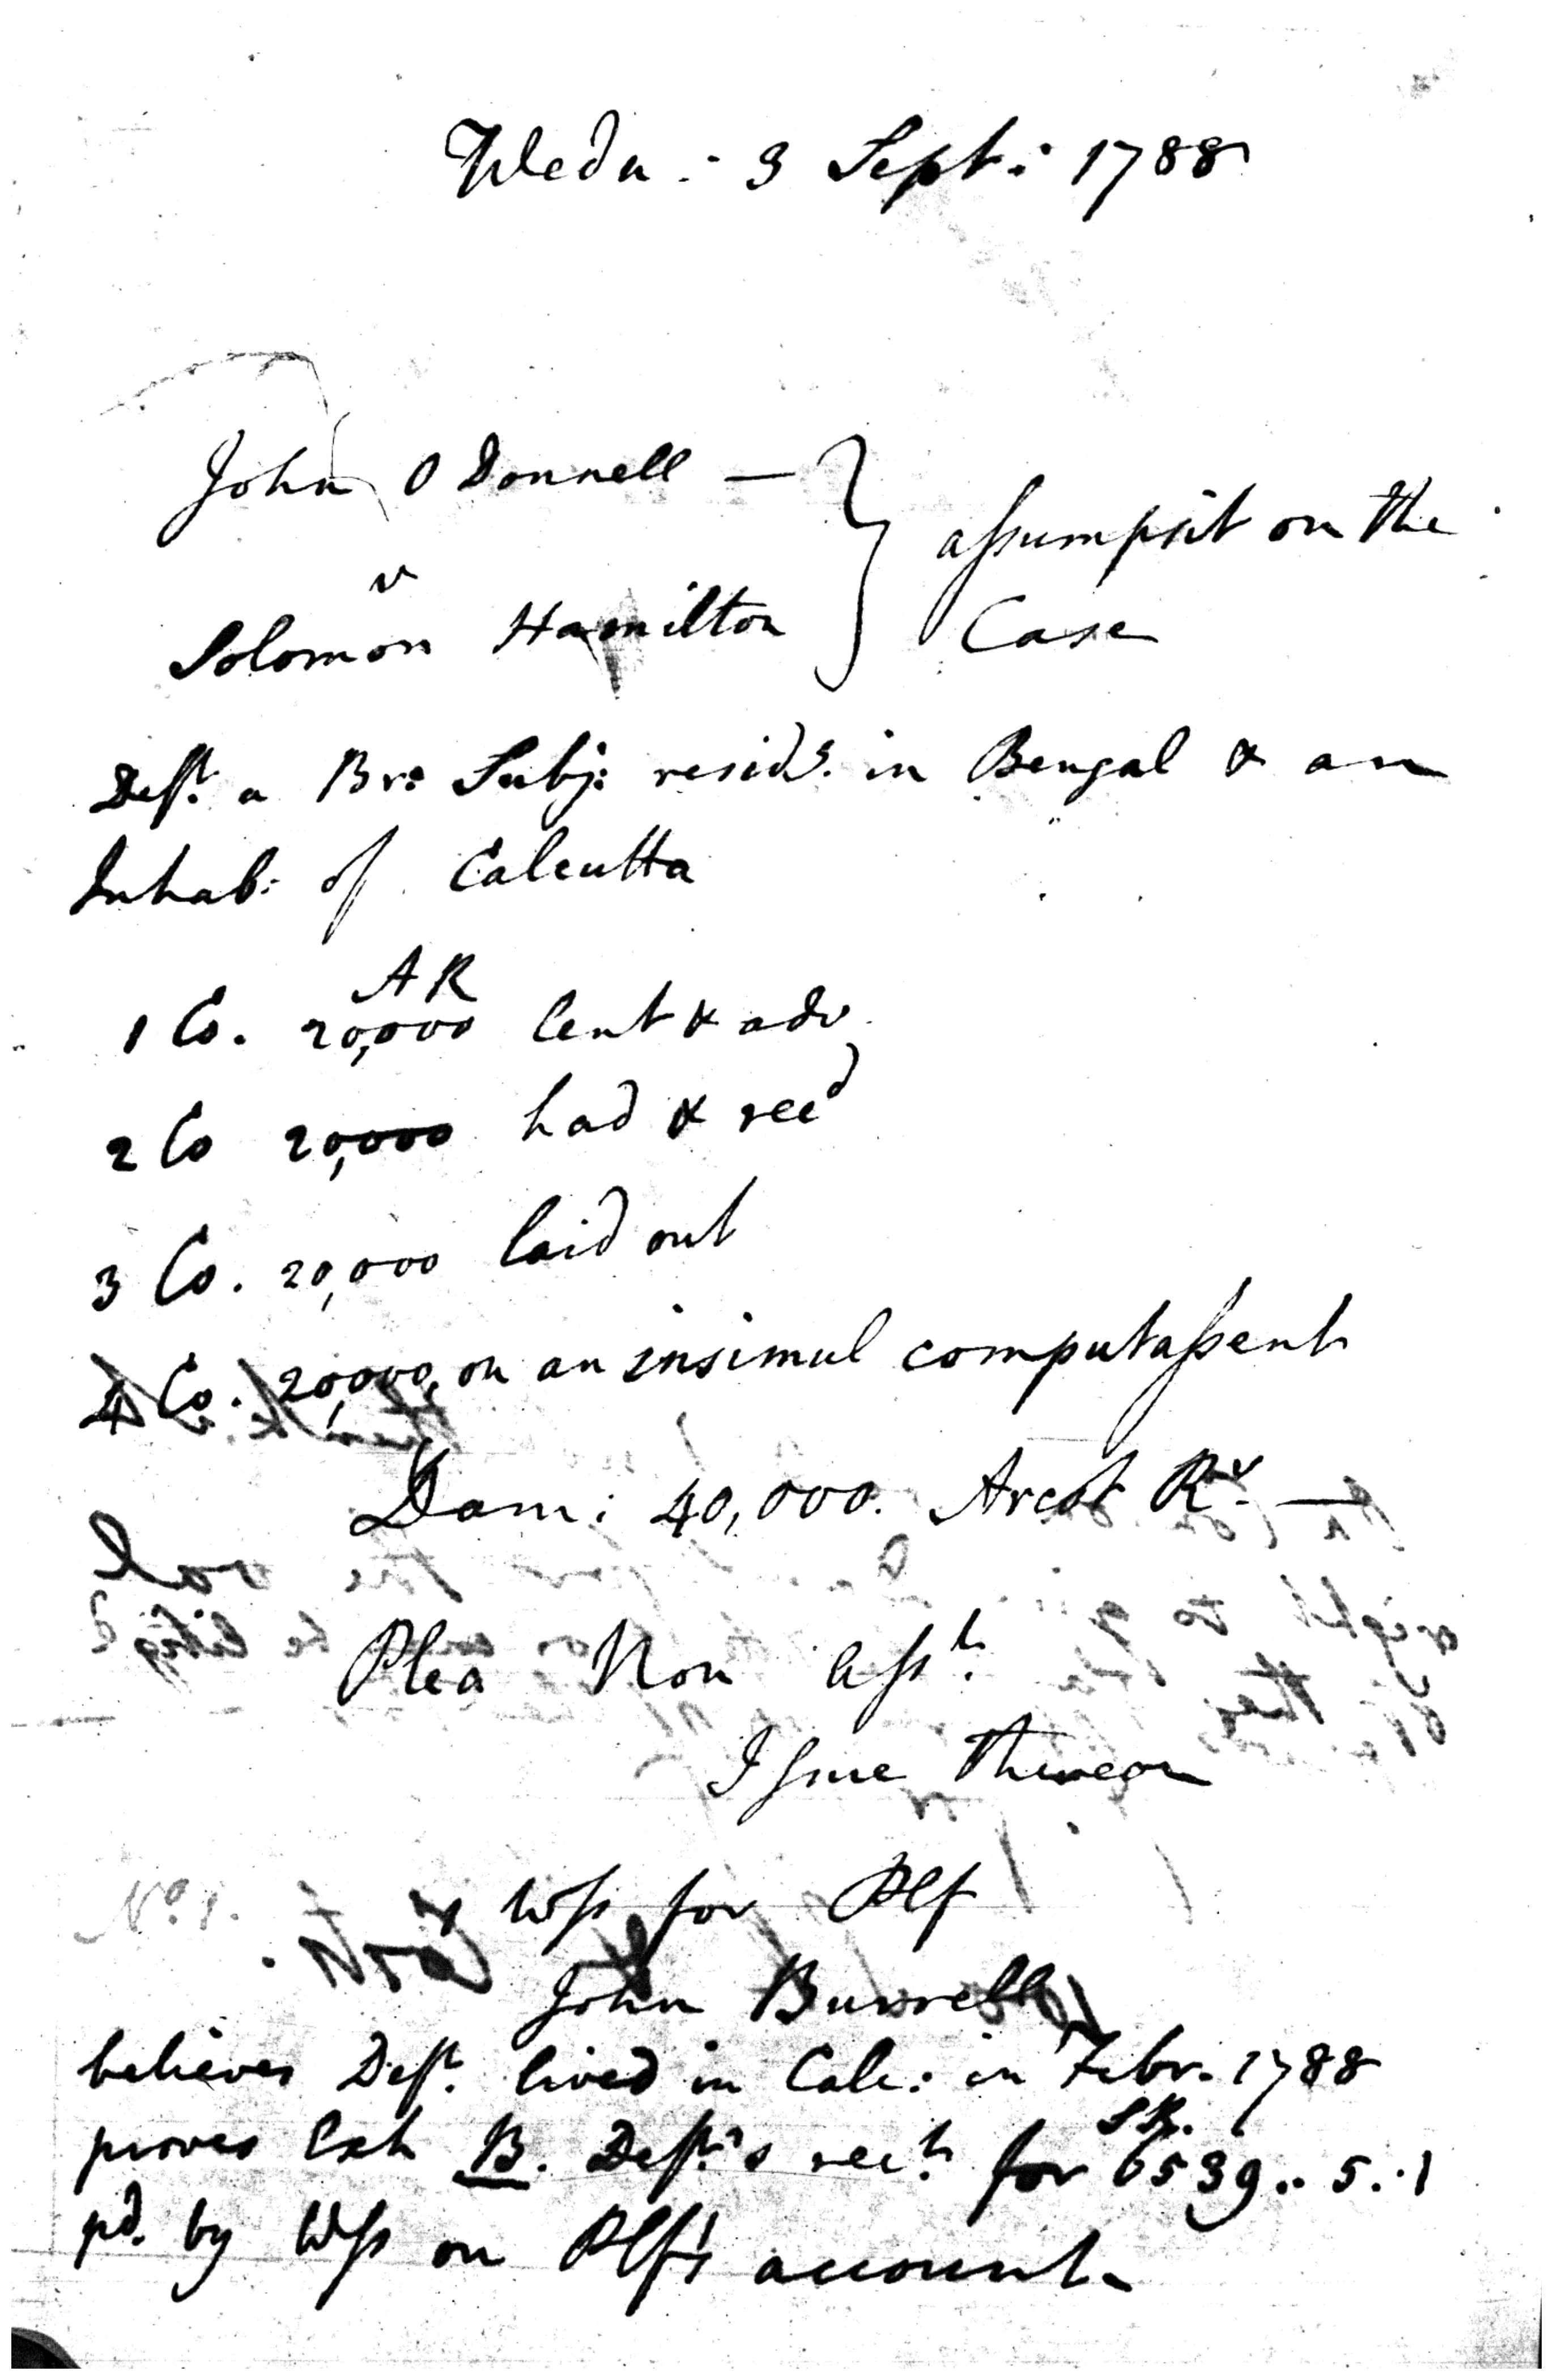 Wedn: 3 Sept: 1788
John O Donnell —
v
Solomon Hamilton
assumpsit on the
Case
Deft. a Br: Subj: resids. in Bengal & an
Inhab: of Calcutta
A R
1 Co. 20,000 lent & adv.
2 Co 20,000 had & recd
3 Co. 20,000 laid out
4 Co. 20,000, on an insimul computassent
Dam: 40,000. Arcot Rs. —
Plea Non Asst.
Issue thereon
No. 1.
Wss for Plf
John Burrell
believes Deft. lived in Calc: in Febr. 1788
SR.
proves Exh B. Deft.'s rect. for 6539..5..1
pd. by Wss on Plf's account